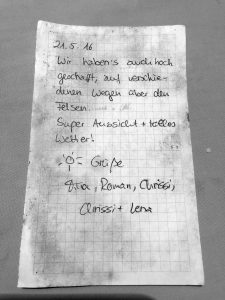 21.5.16
Wir haben's auch hoch
geschafft, auf verschie-
denen Wegen über den
Felsen.
Super Aussicht + tolles
Wetter!
Grüße
Roman, Chrissi,
Chrissi + Lena